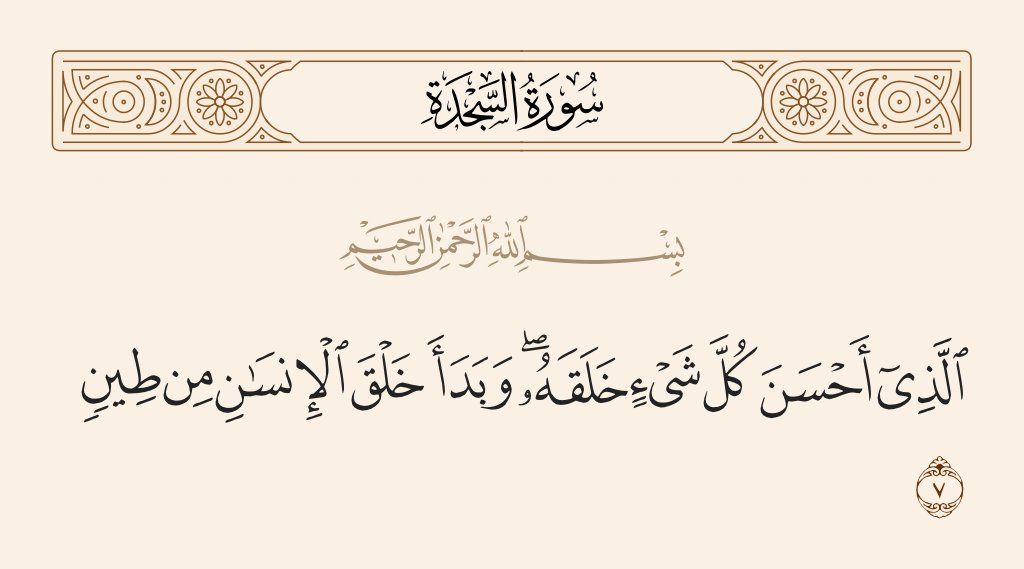 سُورَةُ السَّجْدَةِ
بِسْمِ ٱللَّهِ ٱلرَّحْمَٰنِ ٱلرَّحِيمِ
ٱلَّذِىٓ أَحْسَنَ كُلَّ شَىْءٍ خَلَقَهُۥ ۖ وَبَدَأَ خَلْقَ ٱلْإِنسَـٰنِ مِن طِينٍ
٧